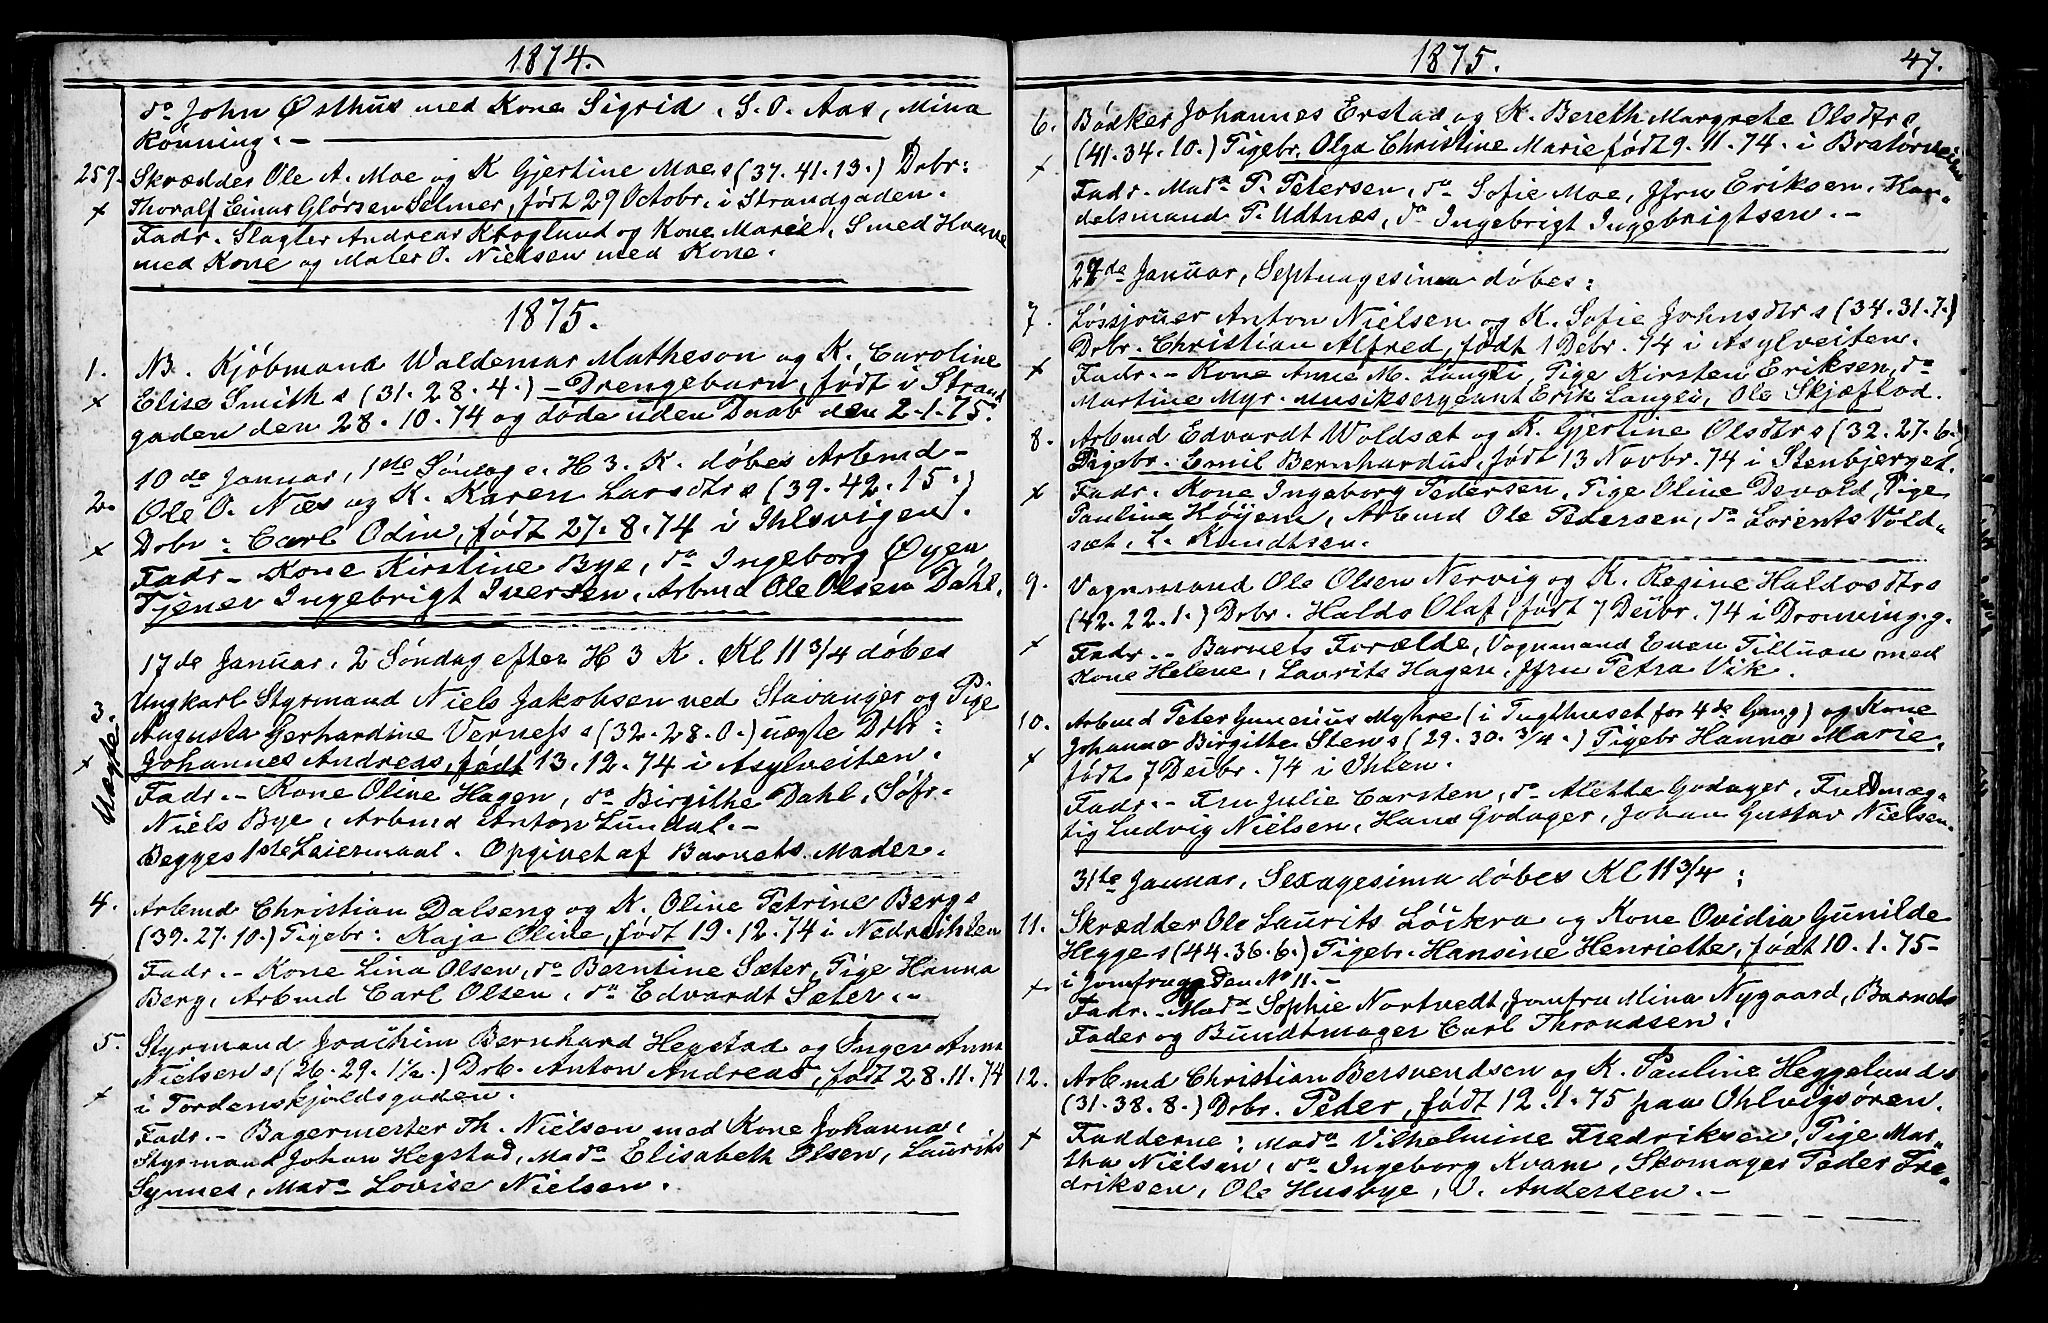 1874.
do John Østhus med Kone Sigrid. S. O. Aas, Mina
Rønning. –
259. Skrædder Ole A. Moe og K Gjertine Moes (37. 41. 13.) Drbr:
x Thoralf Einar Glørsen Selmer, født 29 Octobr. i Strandgaden.
Fadr. Slagter Andreas Kroglund og Kone Marie, Smed
med Kone og Maler O. Nielsen med Kone.
1875.
1. NB. Kjøbmand Waldemar Matheson og K. Caroline
x Elise Smith s (31. 28. 4.) – Drengebarn, født i Strand
gaden den 28. 10. 74 og døde uden Daab den 2. 1. 75.
10de Januar, 1ste Søndag e. H 3. K. døbes Arbmd –
2. Ole O. Næs og K. Karen Larsdtr s (39. 42. 15.)
x Drbr: Carl Odin, født 27. 8. 74 i Ihlsvigen.
Fadr – Kone Kirstine Bye, do Ingeborg Øyen
Tjener Ingebrigt Iversen, Arbmd Ole Olsen Dahl.
17de Januar. 2 Søndag efter H 3 K. Kl 11 3/4 døbes
3. Ungkarl Styrmand Niels Jakobsen ved Stavanger og Pige
Uægte. Augusta Gerhardine Verness s (32. 28. 0.) uægte Drbr:
x Johannes Andreas, født 13. 12. 74 i Asylveiten.
Fadr. – Kone Oline Hagen, do Birgithe Dahl, Søfr.
Niels Bye, Arbmd Anton Lundal. –
Begges 1ste Leiermaal. Opgivet af Barnets Moder.
4. Arbmd Christian Dalseng og K. Oline Petrine Bergs
(39. 27. 10.) Pigebr: Kaja Oline, født 19. 12. 74 i Nedre Ihlen
Fadr. – Kone Lina Olsen, do Berntine Sæter, Pige Hanna
Berg, Arbmd Carl Olsen, do Edvardt Sæter. –
5. Styrmand Joachim Bernhard Hegstad og Inger Anna
Nielsen s (26. 29. 1 1/2.) Drb. Anton Andreas, født 28. 11. 74
x i Tordenskjoldsgaden.
Fadr. – Bagermester Th. Nielsen med Kone Johanna,
Styrmand Johan Hegstad, Mada Elisabeth Olsen, Laurits
Synnes, Mada Lovise Nielsen.
1875. 47.
6. Bødker Johannes Erstad og K. Bereth Margrete Olsdtr s
x (41. 34. 10.) Pigebr. Olga Christine Marie født 9. 11. 74. i Bratørveiten
Fadr. Mada P. Petersen, do Sofie Moe, Jfru Eriksen, Han-
delsmand P. Udtnæs, do Ingebrigt Ingebrigtsen. –
24de Januar, Septuagesima døbes:
7. Løssjouer Anton Nielsen og K. Sofie Johnsdtr s (34. 31. 7.)
Drbr. Christian Alfred, født 1 Debr. 74 i Asylveiten.
x Fadr. – Kone Anne M. Langli, Pige Kirsten Eriksen, do
Martine Myr. Musiksergeant Erik Langli, Ole Skjeflod.
8. Arbmd Edvardt Woldsæt og K. Gjertine Olsdtr s (32. 27. 6.)
Pigebr. Emil Bernhardus, født 13 Novbr. 74 i Stenbjerget.
x Fadr. Kone Ingeborg Pedersen, Pige Oline Devold, Pige
Pauline Høyem, Arbmd Ole Pedersen, do Lorents Vold-
sæt, L. Knudtsen.
9. Vognmand Ole Olsen Nervig og K. Regine Haldosdtr s
(42. 22. 1.) Drbr. Haldo Olaf, født 7 Deibr. 74 i Dronning. g.
x Fadr. – Barnets Forælde, Vognmand Even Tilluan med
Kone Helene, Laurits Hagen, Jfru Petra Vik.
10. Arbmd Peter Junerius Myhre (i Tugthuset for 4de Gang) og Kone
x Johanna Birgitte Stens (29. 30. 3/4.) Pigebr Hanna Marie,
født 7 Deibr. 74 i Ihlen.
Fadr. – Fru Julie Carsten, do Alette Godager, Fuldmæg-
tig Ludvig Nielsen, Hans Godager, Johan Gustav Nielsen.
31te Januar, Sexagesima døbes Kl 11 3/4:
11. Skrædder Ole Laurits Löikra og Kone Ovidia Gunilde
Hegges (44. 36. 6.) Pigebr. Hansine Henriette, født 10. 1. 75 –
x i Jomfrugaden No 11. –
Fadr. – Mada Sophie Nortvedt, Jomfru Mina Nygaard, Barnets
Fader og Bundtmager Carl Throndsen.
12. Arbmd Christian Bersvendsen og K. Pauline Heggelunds
(31. 38. 8.) Drbr. Peder, født 12. 1. 75 paa Ihlvigsøren.
x Fadderne: Mada Vilhelmine Fredriksen, Pige Mar-
tha Nielsen, do Ingeborg Kvam, Skomager Peder Fre-
driksen, Ole Husbye, V. Andersen. –